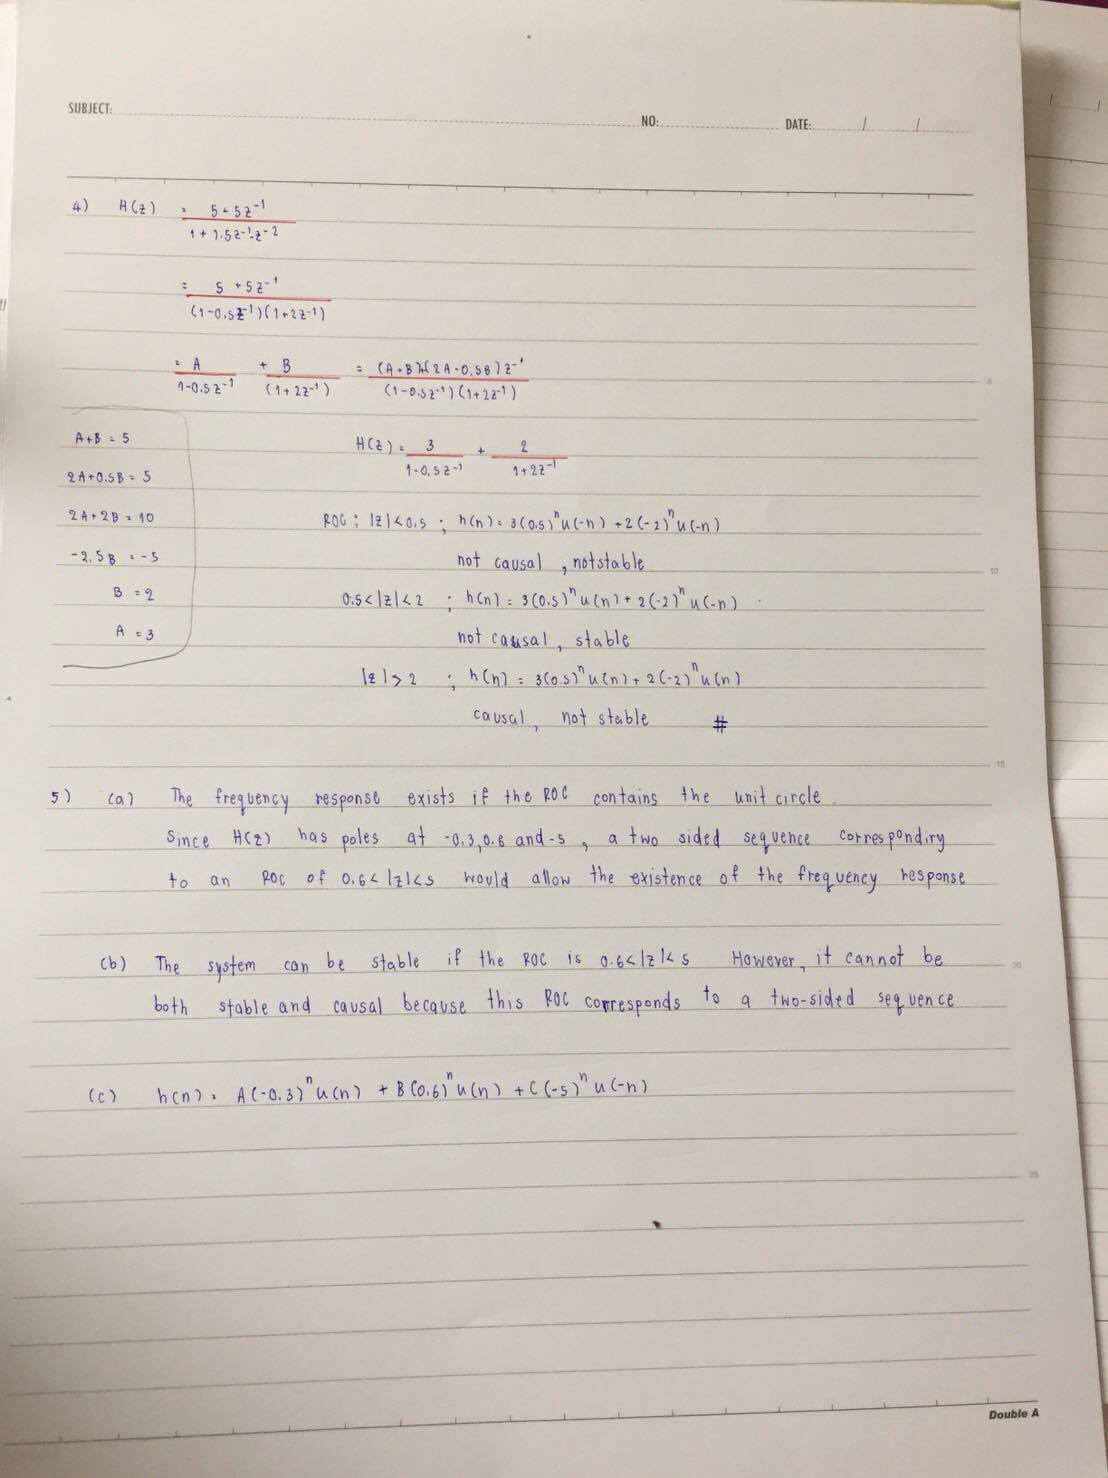 SUBJECT:
NO: DATE: / /
4) H(z) = 5+5z⁻¹
1+1.5z⁻¹-z⁻²
= 5 +5z⁻¹
(1-0.5z⁻¹)(1+2z⁻¹)
= A + B = (A+B)+(2A-0.5B)z⁻¹
1-0.5z⁻¹ (1+2z⁻¹) (1-0.5z⁻¹)(1+2z⁻¹)
A+B = 5
2A+0.5B = 5
2A+2B = 10
-2.5B = -5
B = 2
A = 3
H(z) = 3 + 2
1-0.5z⁻¹ 1+2z⁻¹
ROC : |z|<0.5 ; h(n) = 3(0.5)ⁿu(-n) +2(-2)ⁿu(-n)
not causal , notstable
0.5<|z|<2 ; h(n) = 3(0.5)ⁿu(n)+2(-2)ⁿu(-n)
not causal, stable
|z|>2 ; h(n) = 3(0.5)ⁿu(n)+2(-2)ⁿu(n)
causal, not stable #
5) (a) The frequency response exists if the ROC contains the unit circle.
Since H(z) has poles at -0.3,0.6 and -5, a two sided sequence correspondiry
to an ROC of 0.6<|z|<5 would allow the existence of the frequency response
(b) The system can be stable if the ROC is 0.6<|z|<5 However, it cannot be
both stable and causal because this ROC corresponds to a two-sided sequence
(c) h(n) = A(-0.3)ⁿu(n) + B(0.6)ⁿu(n) + C(-5)ⁿu(-n)
Double A